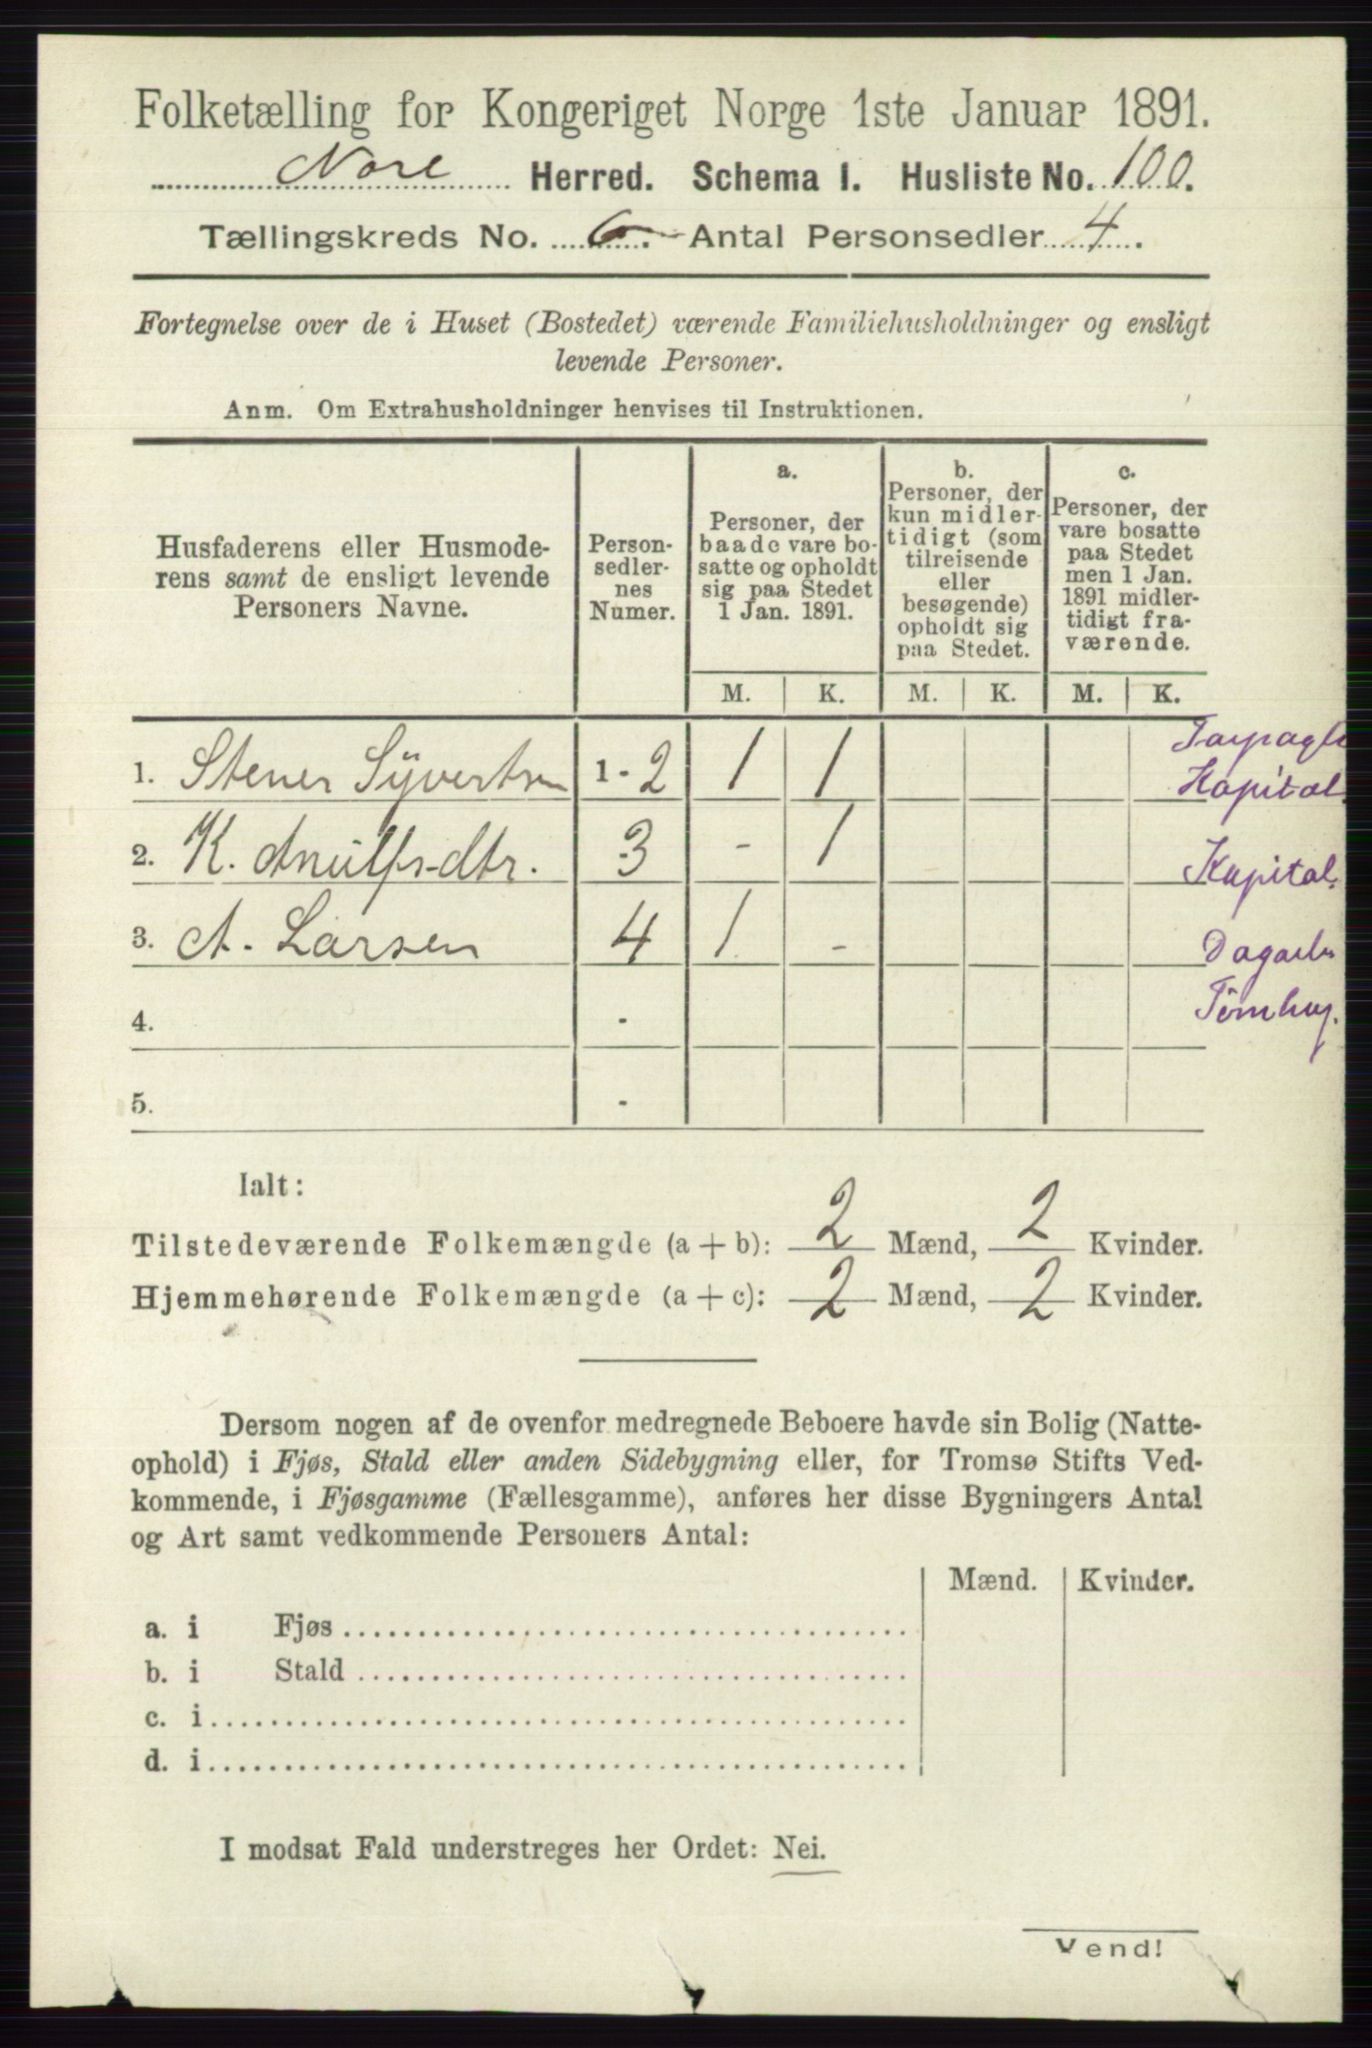 Folketælling for Kongeriget Norge 1ste Januar 1891.
Nore Herred. Schema I. Husliste No. 100.
Tællingskreds No. 6. Antal Personsedler 4.
Fortegnelse over de i Huset (Bostedet) værende Familiehusholdninger og ensligt
levende Personer.
Anm. Om Extrahusholdninger henvises til Instruktionen.
Husfaderens eller Husmode-
rens samt de ensligt levende
Personers Navne.
Person-
sedler-
nes
Numer.
a.
Personer, der
baade vare bo-
satte og opholdt
sig paa Stedet
1 Jan. 1891.
b.
Personer, der
kun midler-
tidigt (som
tilreisende
eller
besøgende)
opholdt sig
paa Stedet.
c.
Personer, der
vare bosatte
paa Stedet
men 1 Jan.
1891 midler-
tidigt fra-
værende.
M. K. M. K. M. K.
1. Stener Syvertsen 1-2 1 1
Kapital.
2. K. Anulfs-dtr. 3 - 1 Kapital.
3. A. Larsen 4 1 -
4. -
5. -
Ialt:
Tilstedeværende Folkemængde (a + b): 2 Mænd, 2 Kvinder.
Hjemmehørende Folkemængde (a + c): 2 Mænd, 2 Kvinder.
Dersom nogen af de ovenfor medregnede Beboere havde sin Bolig (Natte-
ophold) i Fjøs, Stald eller anden Sidebygning eller, for Tromsø Stifts Ved-
kommende, i Fjøsgamme (Fællesgamme), anføres her disse Bygningers Antal
og Art samt vedkommende Personers Antal:
Mænd. Kvinder.
a. i Fjøs
b. i Stald
c. i
d. i
I modsat Fald understreges her Ordet: Nei.
Vend!